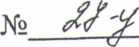 № 28-у